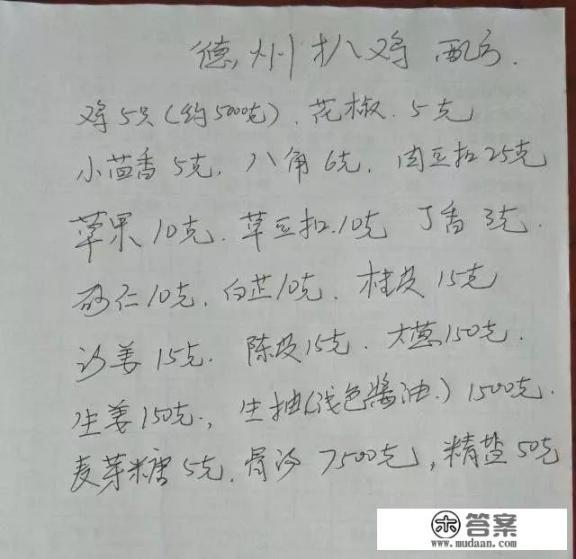 德州扒鸡配方.
鸡5只(约5000克).花椒.5克
小茴香5克,八角6克,肉豆扣25克
草果10克.草豆扣.10克 丁香3克.
砂仁10克.白芷10克.桂皮15克
沙姜15克.陈皮15克.大葱150克.
生姜150克.,生抽(浅色酱油.)1500克.
麦芽糖5克.骨汤7500克,精盐50克
答案
www.mudaan.com